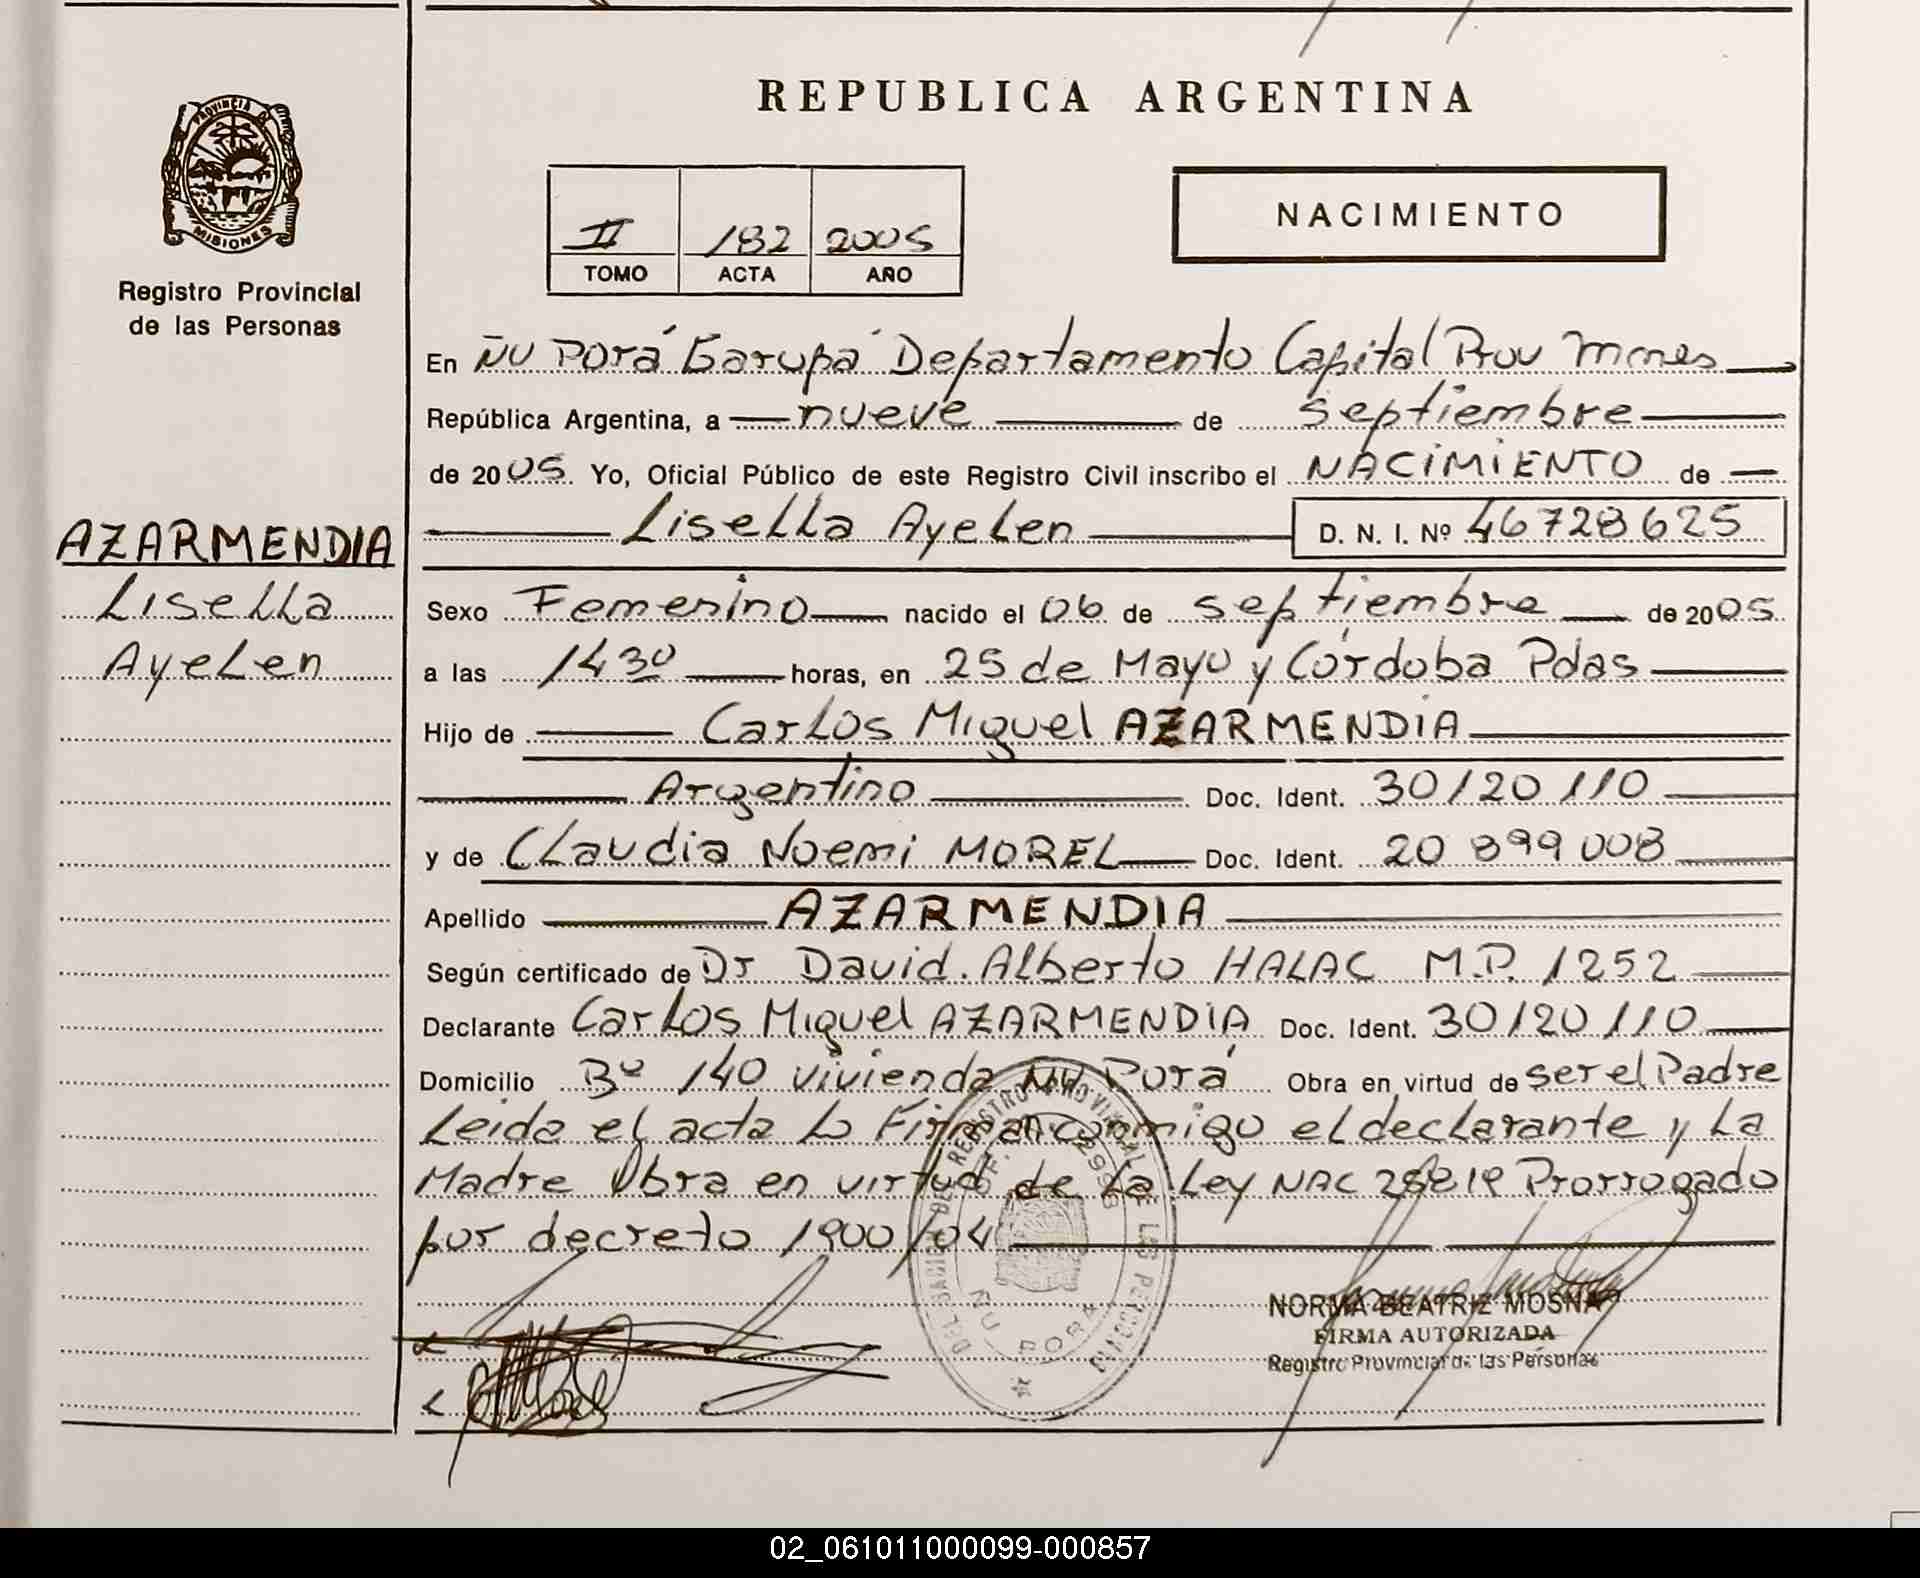 REPUBLICA ARGENTINA
PROVINCIA DE
MISIONES
Registro Provincial
de las Personas
II 182 2005
TOMO ACTA AÑO
NACIMIENTO
En ÑU Porá Garupá Departamento Capital Prov Mnes
República Argentina, a nueve de septiembre
de 2005. Yo, Oficial Público de este Registro Civil inscribo el NACIMIENTO de
Lisella Ayelen D. N. I. Nº 46728625
AZARMENDIA
Lisella
Ayelen
Sexo Femenino nacido el 06 de septiembre de 2005
a las 14 30 horas, en 25 de Mayo y Córdoba Pdas
Hijo de Carlos Miguel AZARMENDIA
Argentino Doc. Ident. 30120110
y de Claudia Noemi MOREL Doc. Ident. 20 899 008
Apellido AZARMENDIA
Según certificado de Dr David Alberto HALAC M.P. 1252
Declarante Carlos Miguel AZARMENDIA Doc. Ident. 30120110
Domicilio Bº 140 vivienda ÑU Porá Obra en virtud de ser el Padre
Leida el acta Lo Firman conmigo el declarante y La
Madre Obra en virtud de La Ley NAC 25819 Prorrogado
por decreto 1900/04
NORMA BEATRIZ MOSNA
FIRMA AUTORIZADA
Registro Provincial de las Personas
ÑU PORA
02_061011000099-000857